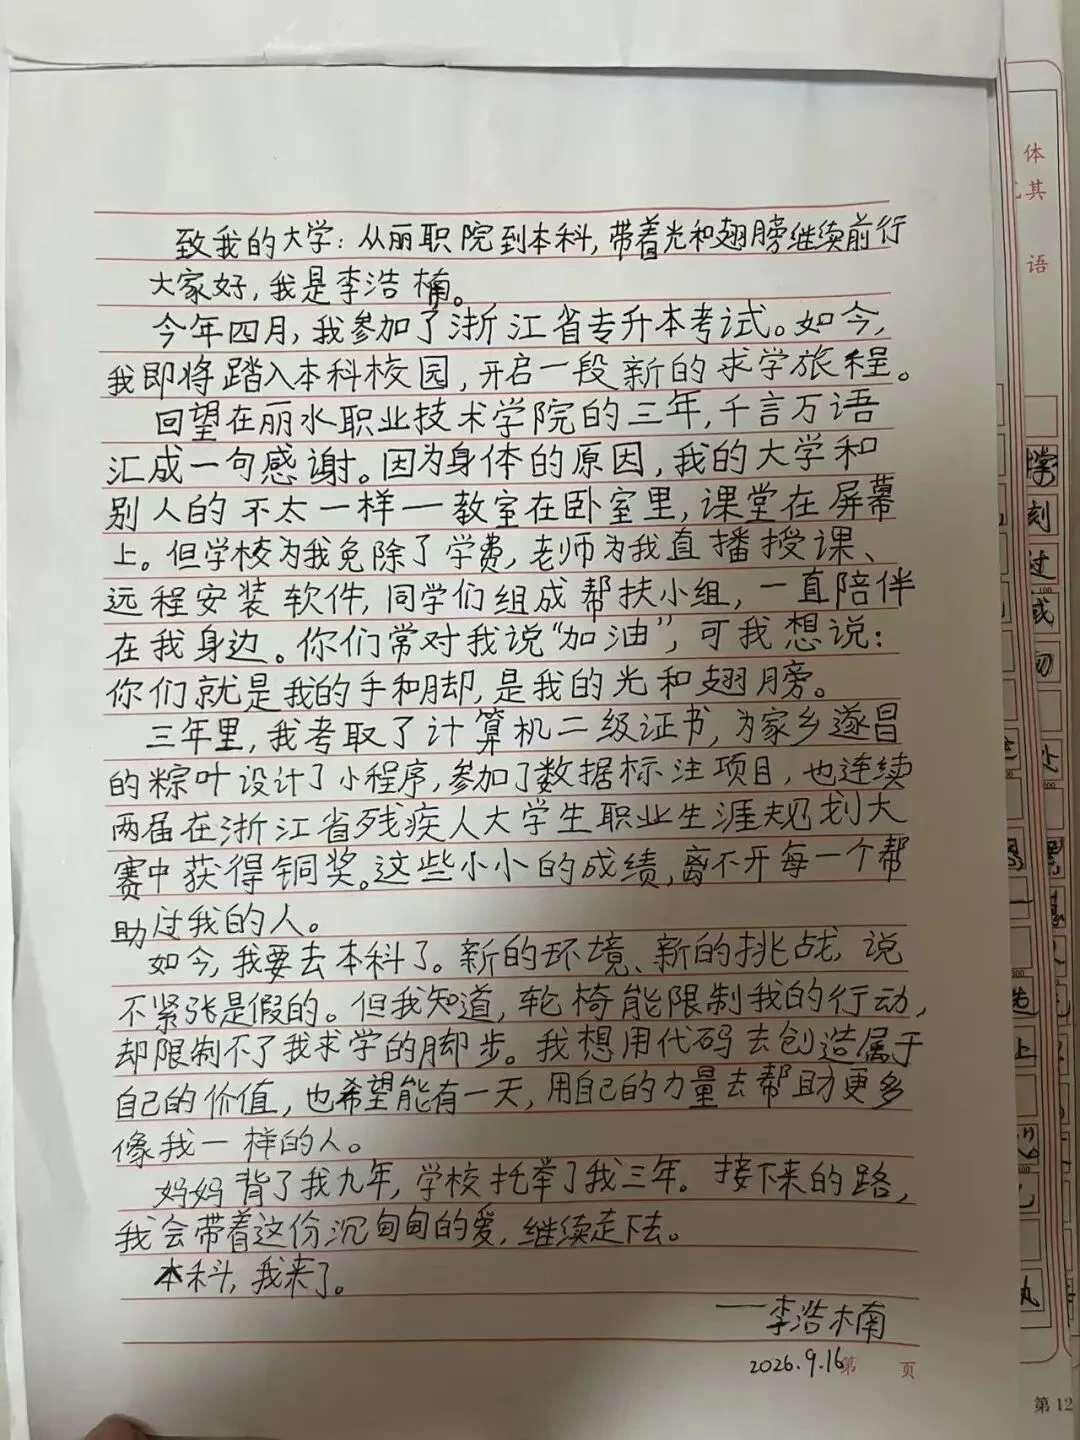 致我的大学：从丽职院到本科，带着光和翅膀继续前行
大家好，我是李浩楠。
今年四月，我参加了浙江省专升本考试。如今，
我即将踏入本科校园，开启一段新的求学旅程。
回望在丽水职业技术学院的三年，千言万语
汇成一句感谢。因为身体的原因，我的大学和
别人的不太一样—教室在卧室里，课堂在屏幕
上。但学校为我免除了学费，老师为我直播授课、
远程安装软件，同学们组成帮扶小组，一直陪伴
在我身边。你们常对我说“加油”，可我想说：
你们就是我的手和脚，是我的光和翅膀。
三年里，我考取了计算机二级证书，为家乡遂昌
的粽叶设计了小程序，参加了数据标注项目，也连续
两届在浙江省残疾人大学生职业生涯规划大
赛中获得铜奖。这些小小的成绩，离不开每一个帮
助过我的人。
如今，我要去本科了。新的环境、新的挑战，说
不紧张是假的。但我知道，轮椅能限制我的行动，
却限制不了我求学的脚步。我想用代码去创造属于
自己的价值，也希望能有一天，用自己的力量去帮助更多
像我一样的人。
妈妈背了我九年，学校托举了我三年。接下来的路，
我会带着这份沉甸甸的爱，继续走下去。
本科，我来了。
——李浩楠
2026.9.16第 页
体
其
语
学
刻
过
或
处
上
第12